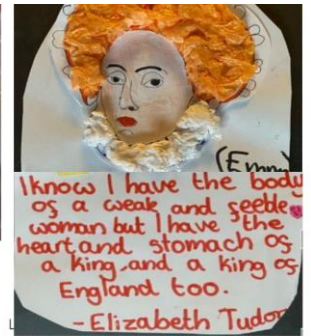 (Emma)
I know I have the body
of a weak and feeble
woman but I have the
heart and stomach of
a king and a king of
England too.
- Elizabeth Tudor